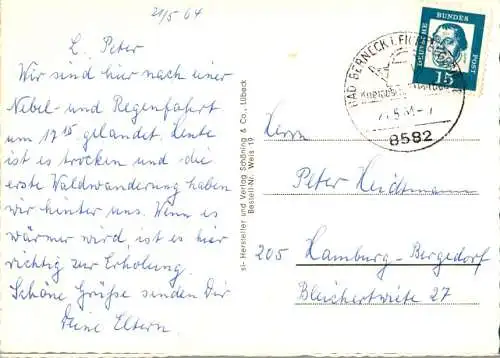 21/5 64
L. Peter
Wir sind hier nach einer
Nebel- und Regenfahrt
um 17 15 gelandet. Heute
ist es trocken und die
erste Waldwanderung haben
wir hinter uns. Wenn es
wärmer wird, ist es hier
richtig zur Erholung.
Schöne Grüße senden Dir
Deine Eltern.
si- Hersteller und Verlag Schöning & Co., Lübeck
Bestell-Nr. Weis 19
BAD BERNECK I. FICHT
8582
DEUTSCHE BUNDESPOST
15
Herrn
Peter Heidtmann
205 Hamburg-Bergedorf
Bleichertwiete 27